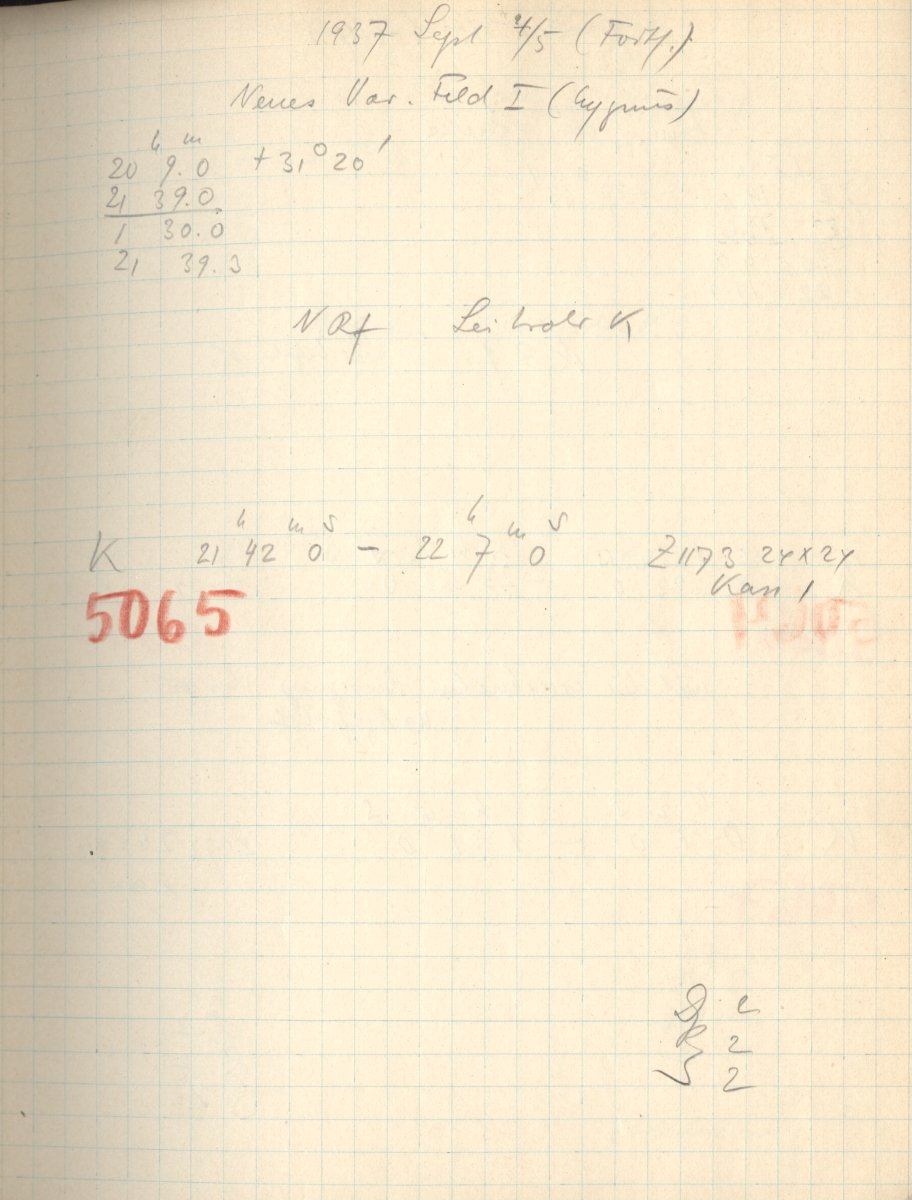 1937 Sept 4/5 (Forts.)
Neues Var. Feld I (Cygnus)
20ʰ 9.ᵐ0 + 31° 20'
21 39.0
1 30.0
21 39.3
Leitrohr K
K 21ʰ 42ᵐ 0ˢ - 22ʰ 7ᵐ 0ˢ Z1173 24x24
Kass 1
5065
2
2
2